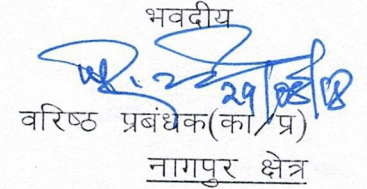 भवदीय
29/08/18
वरिष्ठ प्रबंधक(का/प्र)
नागपुर क्षेत्र